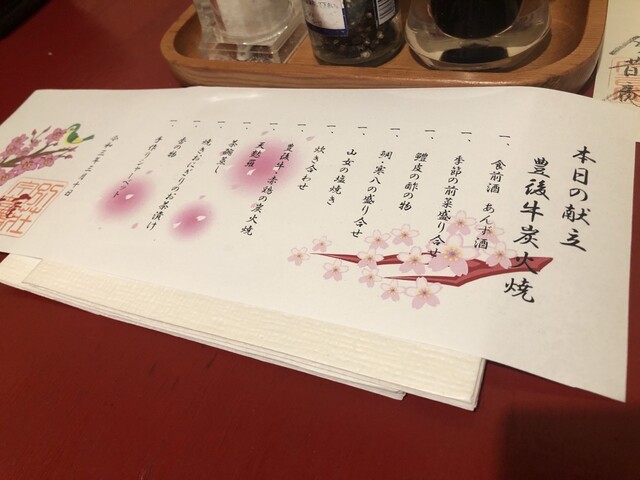 本日の献立
豊後牛炭火焼
一、食前酒 あんず酒
一、季節の前菜盛り合せ
一、鱧皮の酢の物
一、鯛・寒八の盛り合せ
一、山女の塩焼き
一、炊き合わせ
一、豊後牛・赤鶏の炭火焼
一、天麩羅
一、茶碗蒸し
一、焼きおにぎりのお茶漬け
一、香の物
一、手作りシャーベット
令和三年三月十日